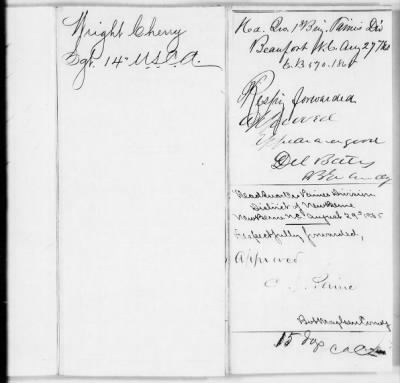 Wright Cherry
Sgt. 14" U.S.C.A.
Hd. Qrs. 1st Brig. Paines Div
Beaufort N.C. Aug 27th
Resply forwarded
approved
Del Bates
Head Quarters Paines Division
District of NewBerne
NewBerne N.C. August 29th 1865
Respectfully forwarded,
Approved
C. J. Paine
Bvt Maj Gen Comdg
15 days